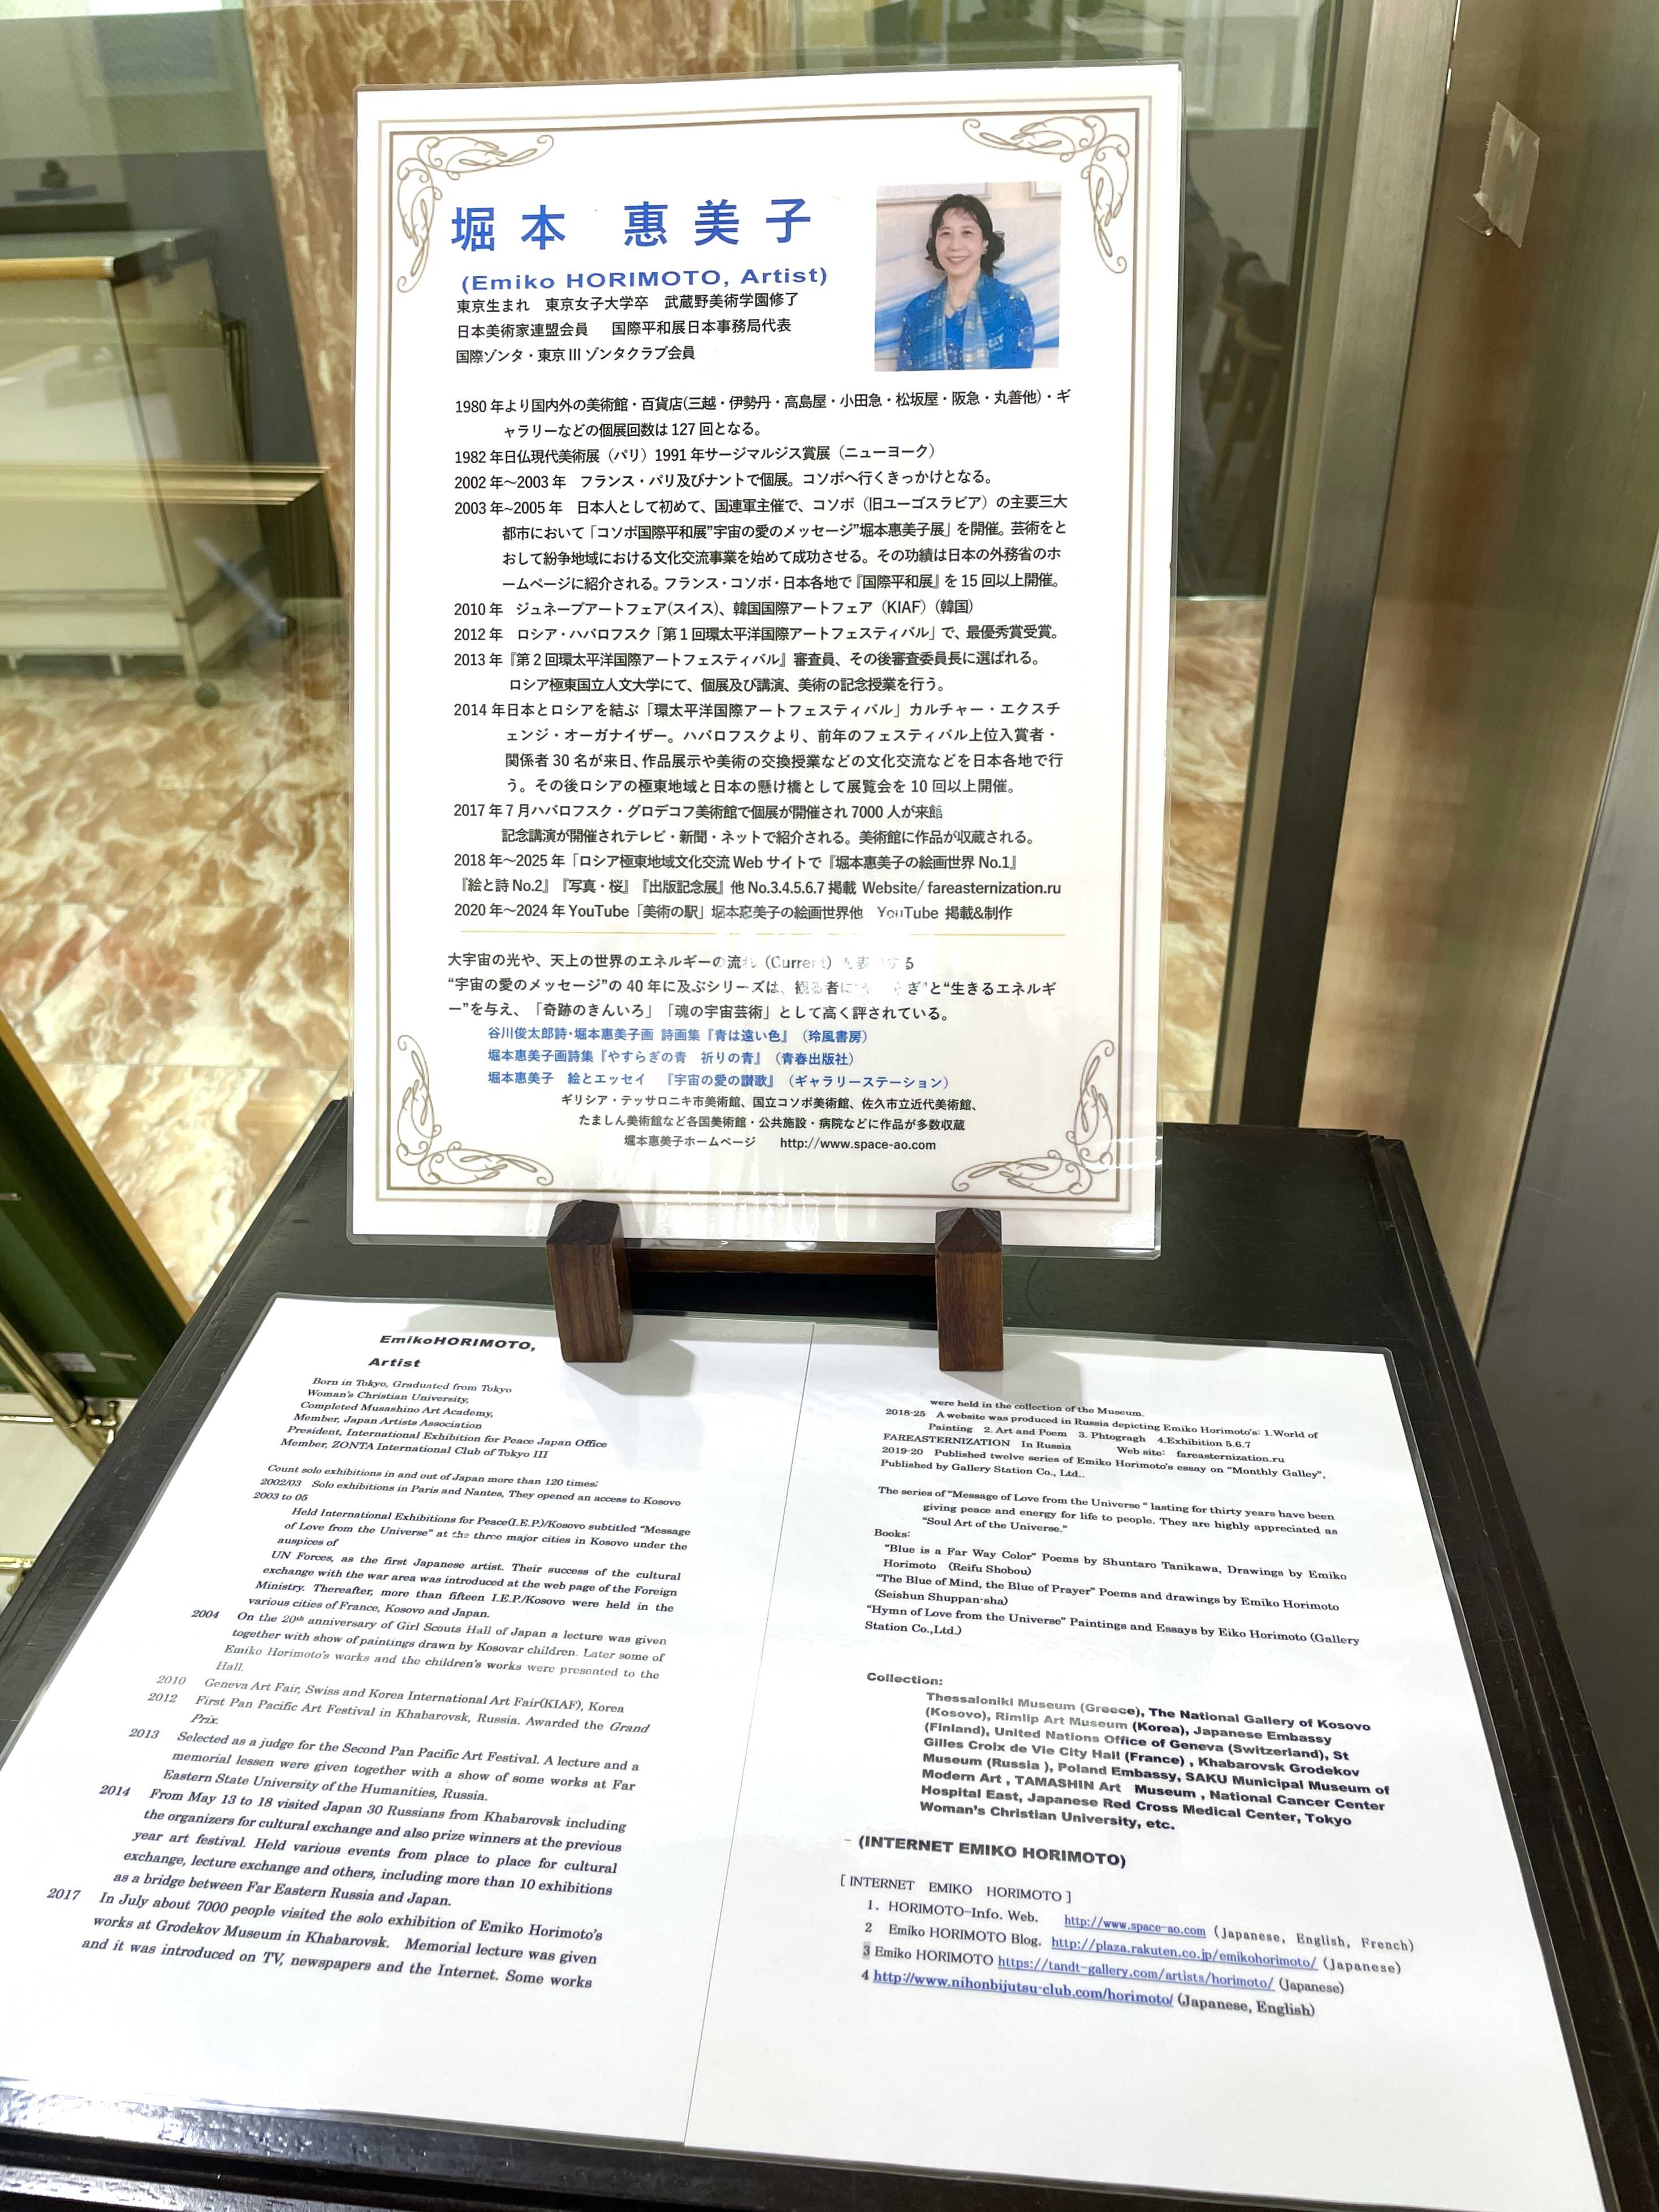 堀本 惠美子
(Emiko HORIMOTO, Artist)
東京生まれ 東京女子大学卒 武蔵野美術学園修了
日本美術家連盟会員 国際平和展日本事務局代表
国際ゾンタ・東京 III ゾンタクラブ会員
1980 年より国内外の美術館・百貨店(三越・伊勢丹・高島屋・小田急・松坂屋・阪急・丸善他)・ギ
ャラリーなどの個展回数は 127 回となる。
1982 年日仏現代美術展（パリ）1991 年サージマルジス賞展（ニューヨーク）
2002 年～2003 年 フランス・パリ及びナントで個展。コソボへ行くきっかけとなる。
2003 年~2005 年 日本人として初めて、国連軍主催で、コソボ（旧ユーゴスラビア）の主要三大
都市において「コソボ国際平和展”宇宙の愛のメッセージ”堀本惠美子展」を開催。芸術をと
おして紛争地域における文化交流事業を始めて成功させる。その功績は日本の外務省のホ
ームページに紹介される。フランス・コソボ・日本各地で『国際平和展』を 15 回以上開催。
2010 年 ジュネーブアートフェア(スイス)、韓国国際アートフェア（KIAF）（韓国）
2012 年 ロシア・ハバロフスク「第 1 回環太平洋国際アートフェスティバル」で、最優秀賞受賞。
2013 年『第 2 回環太平洋国際アートフェスティバル』審査員、その後審査委員長に選ばれる。
ロシア極東国立人文大学にて、個展及び講演、美術の記念授業を行う。
2014 年日本とロシアを結ぶ「環太平洋国際アートフェスティバル」カルチャー・エクスチ
ェンジ・オーガナイザー。ハバロフスクより、前年のフェスティバル上位入賞者・
関係者 30 名が来日、作品展示や美術の交換授業などの文化交流などを日本各地で行
う。その後ロシアの極東地域と日本の懸け橋として展覧会を 10 回以上開催。
2017 年 7 月ハバロフスク・グロデコフ美術館で個展が開催され 7000 人が来館
記念講演が開催されテレビ・新聞・ネットで紹介される。美術館に作品が収蔵される。
2018 年～2025 年「ロシア極東地域文化交流 Web サイトで『堀本惠美子の絵画世界 No.1』
『絵と詩 No.2』『写真・桜』『出版記念展』他 No.3.4.5.6.7 掲載 Website/ fareasternization.ru
2020 年～2024 年 YouTube「美術の駅」堀本惠美子の絵画世界他 YouTube 掲載&制作
大宇宙の光や、天上の世界のエネルギーの流れ（Current）を表 する
“宇宙の愛のメッセージ”の 40 年に及ぶシリーズは、観る者に ぎ”と“生きるエネルギ
ー”を与え、「奇跡のきんいろ」「魂の宇宙芸術」として高く評されている。
谷川俊太郎詩･堀本惠美子画 詩画集『青は遠い色』（玲風書房）
堀本惠美子画詩集『やすらぎの青 祈りの青』（青春出版社）
堀本惠美子 絵とエッセイ 『宇宙の愛の讃歌』（ギャラリーステーション）
ギリシア・テッサロニキ市美術館、国立コソボ美術館、佐久市立近代美術館、
たましん美術館など各国美術館・公共施設・病院などに作品が多数収蔵
堀本惠美子ホームページ http://www.space-ao.com
EmikoHORIMOTO,
Artist
Born in Tokyo, Graduated from Tokyo
Woman's Christian University,
Completed Musashino Art Academy,
Member, Japan Artists Association
President, International Exhibition for Peace Japan Office
Member, ZONTA International Club of Tokyo III
Count solo exhibitions in and out of Japan more than 120 times;
2002/03 Solo exhibitions in Paris and Nantes, They opened an access to Kosovo
2003 to 05
Held International Exhibitions for Peace(I.E.P.)/Kosovo subtitled "Message
of Love from the Universe" at the three major cities in Kosovo under the
auspices of
UN Forces, as the first Japanese artist. Their success of the cultural
exchange with the war area was introduced at the web page of the Foreign
Ministry. Thereafter, more than fifteen I.E.P./Kosovo were held in the
various cities of France, Kosovo and Japan.
2004 On the 20th anniversary of Girl Scouts Hall of Japan a lecture was given
together with show of paintings drawn by Kosovar children. Later some of
Emiko Horimoto's works and the children's works were presented to the
Hall.
2010 Geneva Art Fair, Swiss and Korea International Art Fair(KIAF), Korea
2012 First Pan Pacific Art Festival in Khabarovsk, Russia. Awarded the Grand
Prix.
2013 Selected as a judge for the Second Pan Pacific Art Festival. A lecture and a
memorial lessen were given together with a show of some works at Far
Eastern State University of the Humanities, Russia.
2014 From May 13 to 18 visited Japan 30 Russians from Khabarovsk including
the organizers for cultural exchange and also prize winners at the previous
year art festival. Held various events from place to place for cultural
exchange, lecture exchange and others, including more than 10 exhibitions
as a bridge between Far Eastern Russia and Japan.
2017 In July about 7000 people visited the solo exhibition of Emiko Horimoto's
works at Grodekov Museum in Khabarovsk. Memorial lecture was given
and it was introduced on TV, newspapers and the Internet. Some works
were held in the collection of the Museum.
2018-25 A website was produced in Russia depicting Emiko Horimoto's: 1.World of
Painting 2. Art and Poem 3. Phtogragh 4.Exhibition 5.6.7
FAREASTERNIZATION In Russia Web site: fareasternization.ru
2019-20 Published twelve series of Emiko Horimoto's essay on "Monthly Galley",
Published by Gallery Station Co., Ltd..
The series of "Message of Love from the Universe " lasting for thirty years have been
giving peace and energy for life to people. They are highly appreciated as
"Soul Art of the Universe."
Books:
"Blue is a Far Way Color" Poems by Shuntaro Tanikawa, Drawings by Emiko
Horimoto (Reifu Shobou)
"The Blue of Mind, the Blue of Prayer" Poems and drawings by Emiko Horimoto
(Seishun Shuppan-sha)
"Hymn of Love from the Universe" Paintings and Essays by Eiko Horimoto (Gallery
Station Co.,Ltd.)
Collection:
Thessaloniki Museum (Greece), The National Gallery of Kosovo
(Kosovo), Rimlip Art Museum (Korea), Japanese Embassy
(Finland), United Nations Office of Geneva (Switzerland), St
Gilles Croix de Vie City Hall (France) , Khabarovsk Grodekov
Museum (Russia ), Poland Embassy, SAKU Municipal Museum of
Modern Art , TAMASHIN Art Museum , National Cancer Center
Hospital East, Japanese Red Cross Medical Center, Tokyo
Woman's Christian University, etc.
(INTERNET EMIKO HORIMOTO)
[ INTERNET EMIKO HORIMOTO ]
1. HORIMOTO-Info. Web. http://www.space-ao.com (Japanese, English, French)
2 Emiko HORIMOTO Blog. http://plaza.rakuten.co.jp/emikohorimoto/ (Japanese)
3 Emiko HORIMOTO https://tandt-gallery.com/artists/horimoto/ (Japanese)
4 http://www.nihonbijutsu-club.com/horimoto/ (Japanese, English)